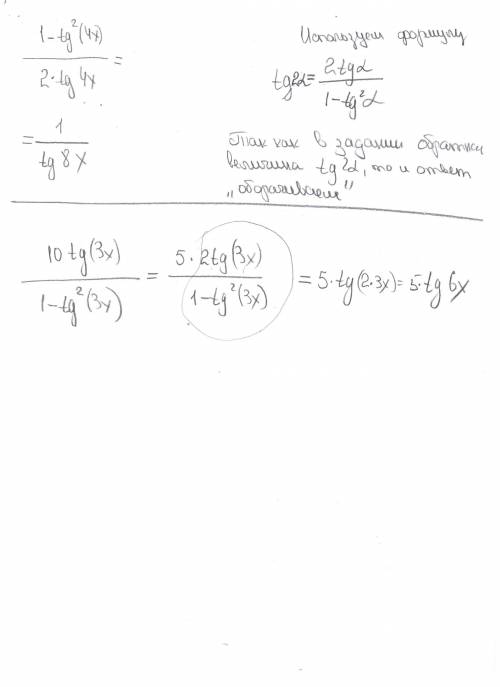 (1-tg²(4x))/(2·tg 4x) =
= 1/(tg 8x)
Используем формулу
tg2α = (2tgα)/(1-tg²α)
Так как в задании обратная
величина tg2α, то и ответ
„оборачиваем"
(10 tg(3x))/(1-tg²(3x)) = (5·2tg(3x))/(1-tg²(3x)) = 5·tg(2·3x) = 5·tg 6x